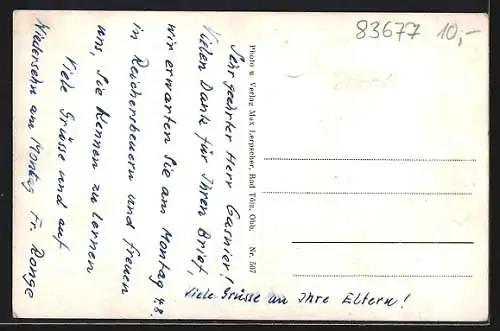 83677 10,-
Sehr geehrter Herr Gasnier!
Vielen Dank für Ihren Brief,
wir erwarten Sie am Montag 4.8.
in Reichersbeuern und freuen
uns, Sie kennen zu lernen
Viele Grüsse und auf
Wiedersehn am Montag Fr. Ronge
Viele Grüsse an Ihre Eltern!
Photo u. Verlag Max Lerpscher, Bad Tölz, Obb. Nr. 507